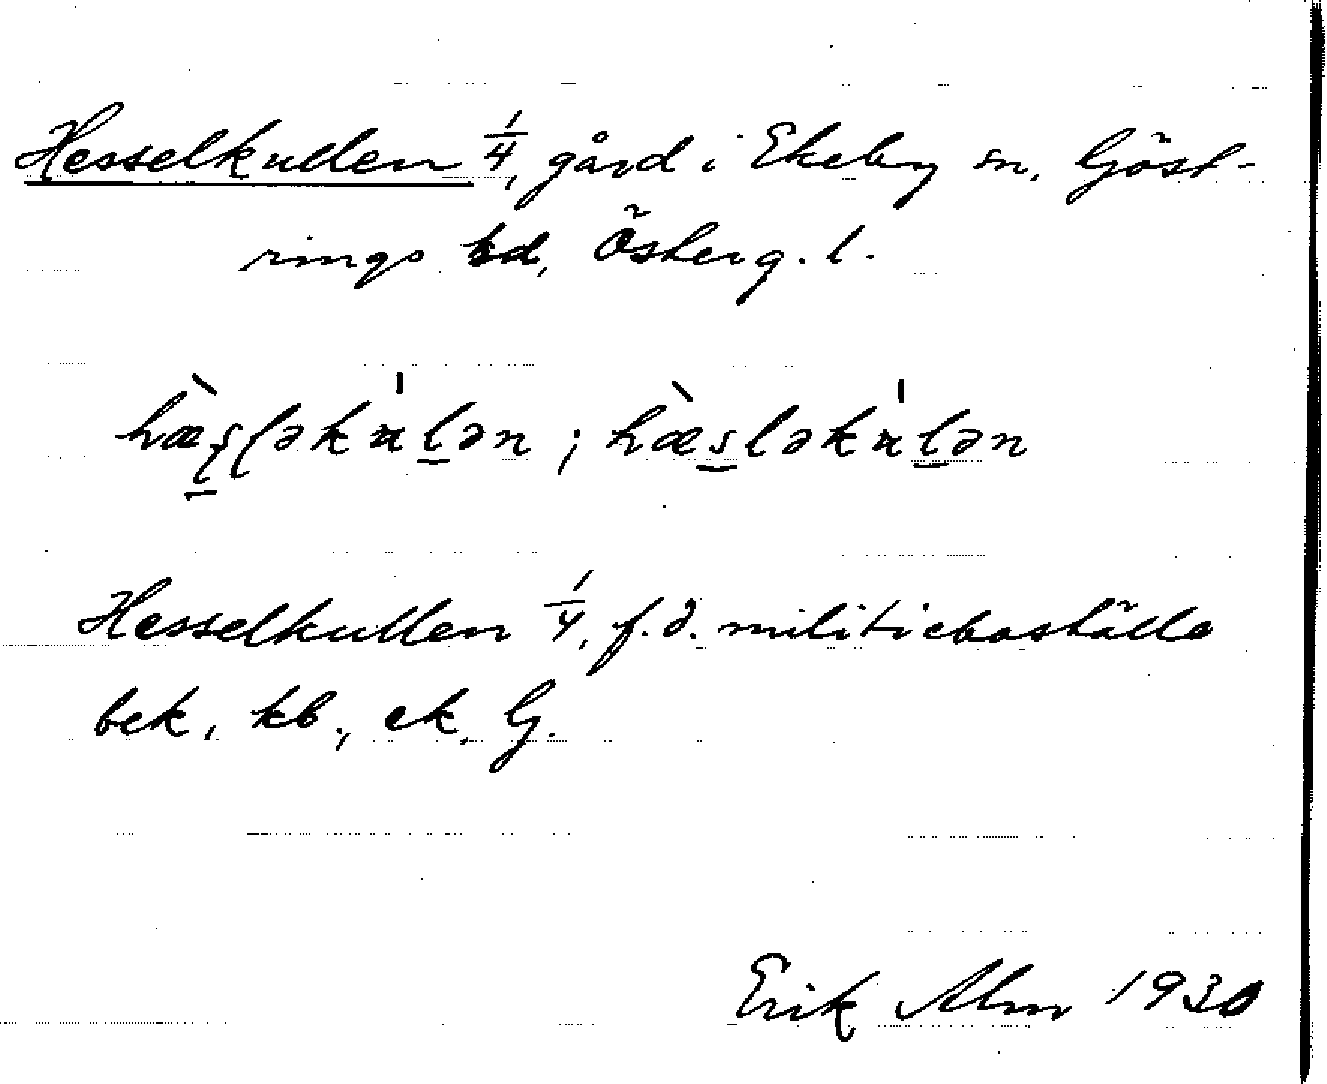 Hesselkullen 1/4, gård i Ekeby sn, Göst-
rings hd, Österg. l.
hæ̀ʂləkul̠ən ; hæ̀s̠ləkul̠ən
Hesselkullen 1/4, f.d. militieboställe
bek, kb, ek, G.
Erik Alm 1930